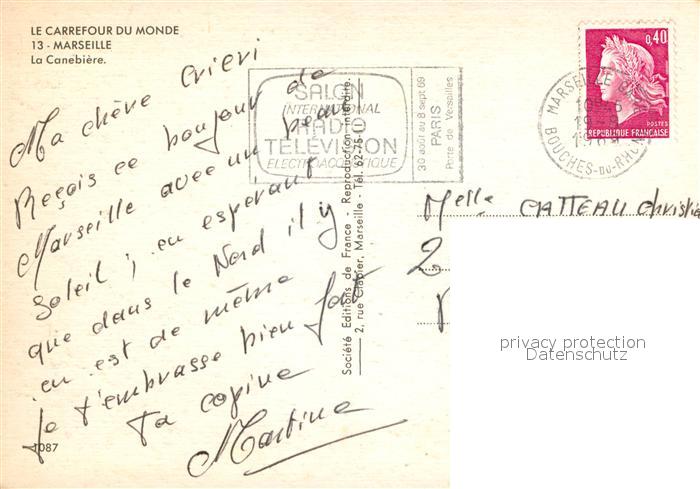 LE CARREFOUR DU MONDE
13 - MARSEILLE
La Canebière.
Ma chère Crieri
Reçois ce bonjour de
Marseille avec un beau
soleil ; en espérant
que dans le Nord il y
en est de même
je t'embrasse bien fort
Ta copine
Martine
1087
SALON
INTERNATIONAL
RADIO
TÉLÉVISION
ELECTROACOUSTIQUE
30 août au 8 sept 69
PARIS
Porte de Versailles
Société Editions de France - Reproduction interdite.
2, rue Clapier, Marseille - Tél. 62-75-
0,40
POSTES
REPUBLIQUE FRANÇAISE
MARSEILLE
19-8
1969
BOUCHES-DU-RHONE
Melle CATTEAU Christia
2
privacy protection
Datenschutz